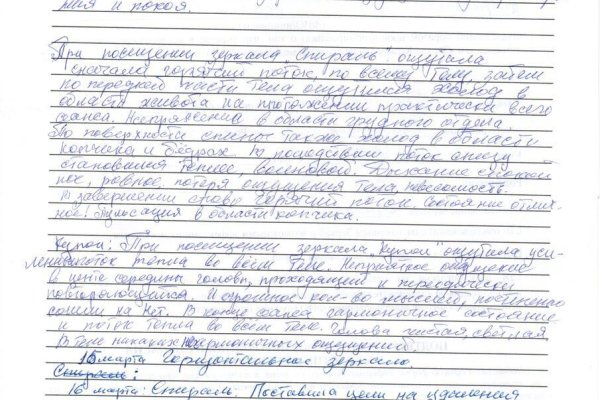 ния и покоя.
При посещении зеркала „Спираль" ощутила
сначала горячий поток, по всему телу, затем
по передней части тела ощущался холод в
области живота на протяжении практически всего
сеанса. Напряжение в области грудного отдела.
По поверхности спины также холод в области
копчика и бёдрах. В последствии поток снизу
становился теплее, волновой. Дыхание спокой
ное, ровное, потеря ощущения тела, невесомость.
В завершении снова горячий поток. Состояние отлич-
ное. Пульсация в области копчика.
Купол: При посещении зеркала „Купол" ощутила уси-
ление поток тепла во всём теле. Неприятное ощущение
в центре середины головы, проходящий и периодически
повторяющийся. Огромное кол-во мыслей, постепенно
сошли на нет. В конце сеанса гармоничное состояние
и поток тепла во всём теле. Голова чистая, светлая
В теле никаких негармоничных ощущений.
15 марта Горизонтальное зеркало.
Спираль:
16 марта: Спираль. Поставила цели на удаления